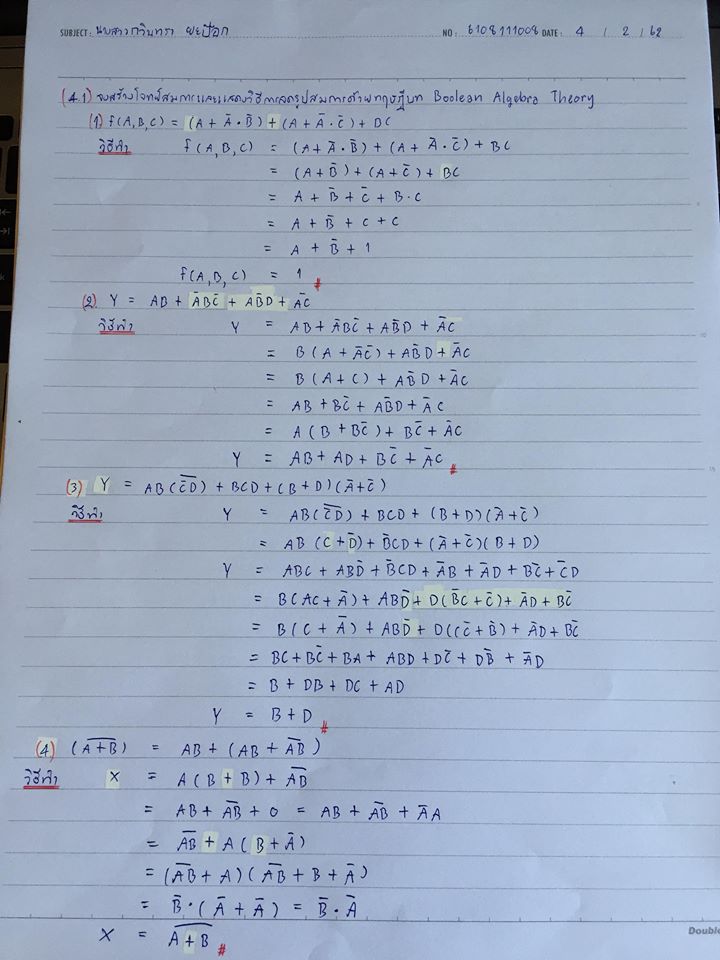 SUBJECT: นางสาวกวินทรา NO: 6108111008 DATE: 4 / 2 / 62
(4.1) จงสร้างโจทย์สมการและแสดงวิธีการลดรูปสมการด้วยทฤษฎีบท Boolean Algebra Theory
(1) f(A,B,C) = (A + Ā·B̄) + (A + Ā·C̄) + BC
วิธีทำ f(A,B,C) = (A + Ā·B̄) + (A + Ā·C̄) + BC
= (A + B̄) + (A + C̄) + BC
= A + B̄ + C̄ + B·C
= A + B̄ + C + C
= A + B̄ + 1
f(A,B,C) = 1 #
(2) Y = AB + ĀBC̄ + AB̄D + ĀC
วิธีทำ Y = AB + ĀBC̄ + AB̄D + ĀC
= B(A + ĀC̄) + AB̄D + ĀC
= B(A + C) + AB̄D + ĀC
= AB + BC̄ + AB̄D + ĀC
= A(B + BC̄) + BC̄ + ĀC
Y = AB + AD + BC̄ + ĀC #
(3) Y = AB(C̅D̅) + BCD + (B+D)(Ā+C̄)
วิธีทำ Y = AB(C̅D̅) + BCD + (B+D)(Ā+C̄)
= AB(C̄+D̄) + B̄CD + (Ā+C̄)(B+D)
Y = ABC + ABD̄ + B̄CD + ĀB + ĀD + BC̄ + C̄D
= B(AC + Ā) + ABD̄ + D(B̄C + C̄) + ĀD + BC̄
= B(C + Ā) + ABD̄ + D((C̄ + B̄) + ĀD + BC̄
= BC + BC̄ + BA + ABD + DC̄ + DB̄ + ĀD
= B + DB + DC + AD
Y = B + D #
(4) (A̅+̅B̅) = AB + (AB + A̅B̅)
วิธีทำ X = A(B + B) + A̅B̅
= AB + A̅B̅ + 0 = AB + A̅B̅ + ĀA
= A̅B̅ + A(B + Ā)
= (A̅B̅ + A)(A̅B̅ + B + Ā)
= B̄·(Ā + Ā) = B̄·Ā
X = A̅+̅B̅ #
Double